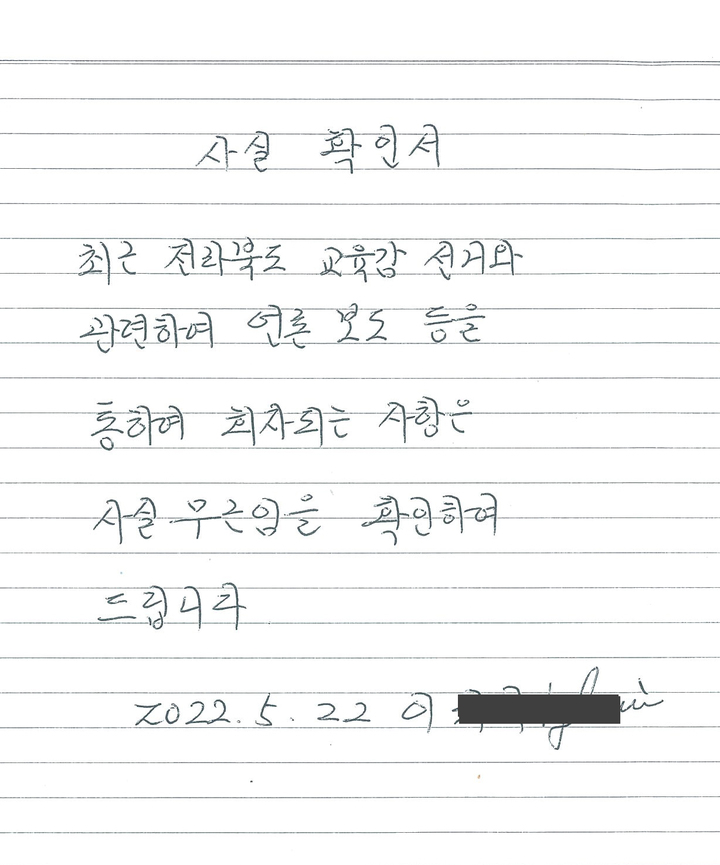 사실 확인서
최근 전라북도 교육감 선거와
관련하여 언론 보도 등을
통하여 회자되는 사항은
사실 무근임을 확인하여
드립니다
2022. 5. 22 이